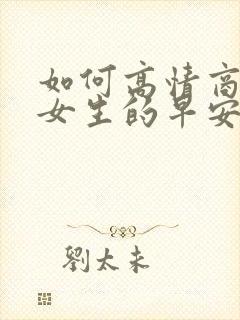 如何高情商
女生的早安
劉太未